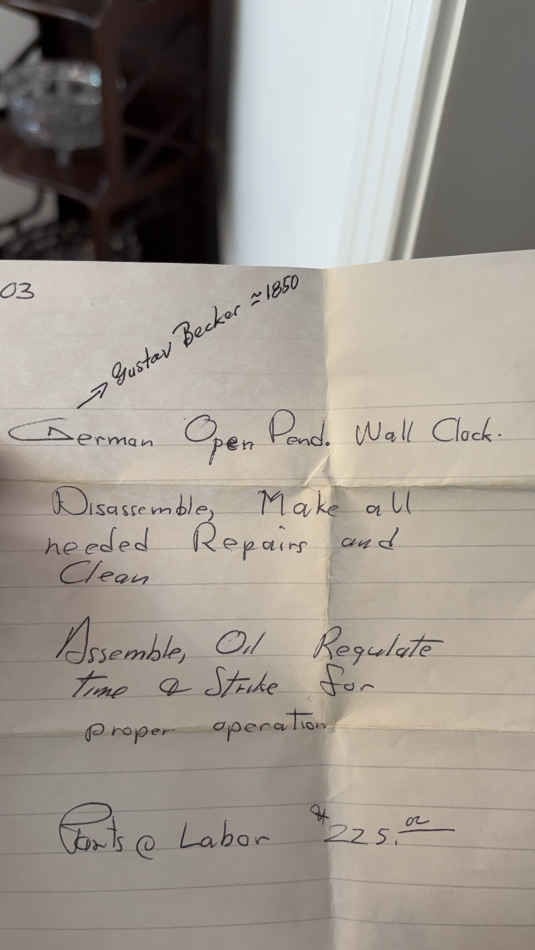 03
Gustav Becker ≈ 1850
German Open Pend. Wall Clock.
Disassemble, Make all
needed Repairs and
Clean
Assemble, Oil Regulate
time & Strike for
proper operation
Parts @ Labor $225.00